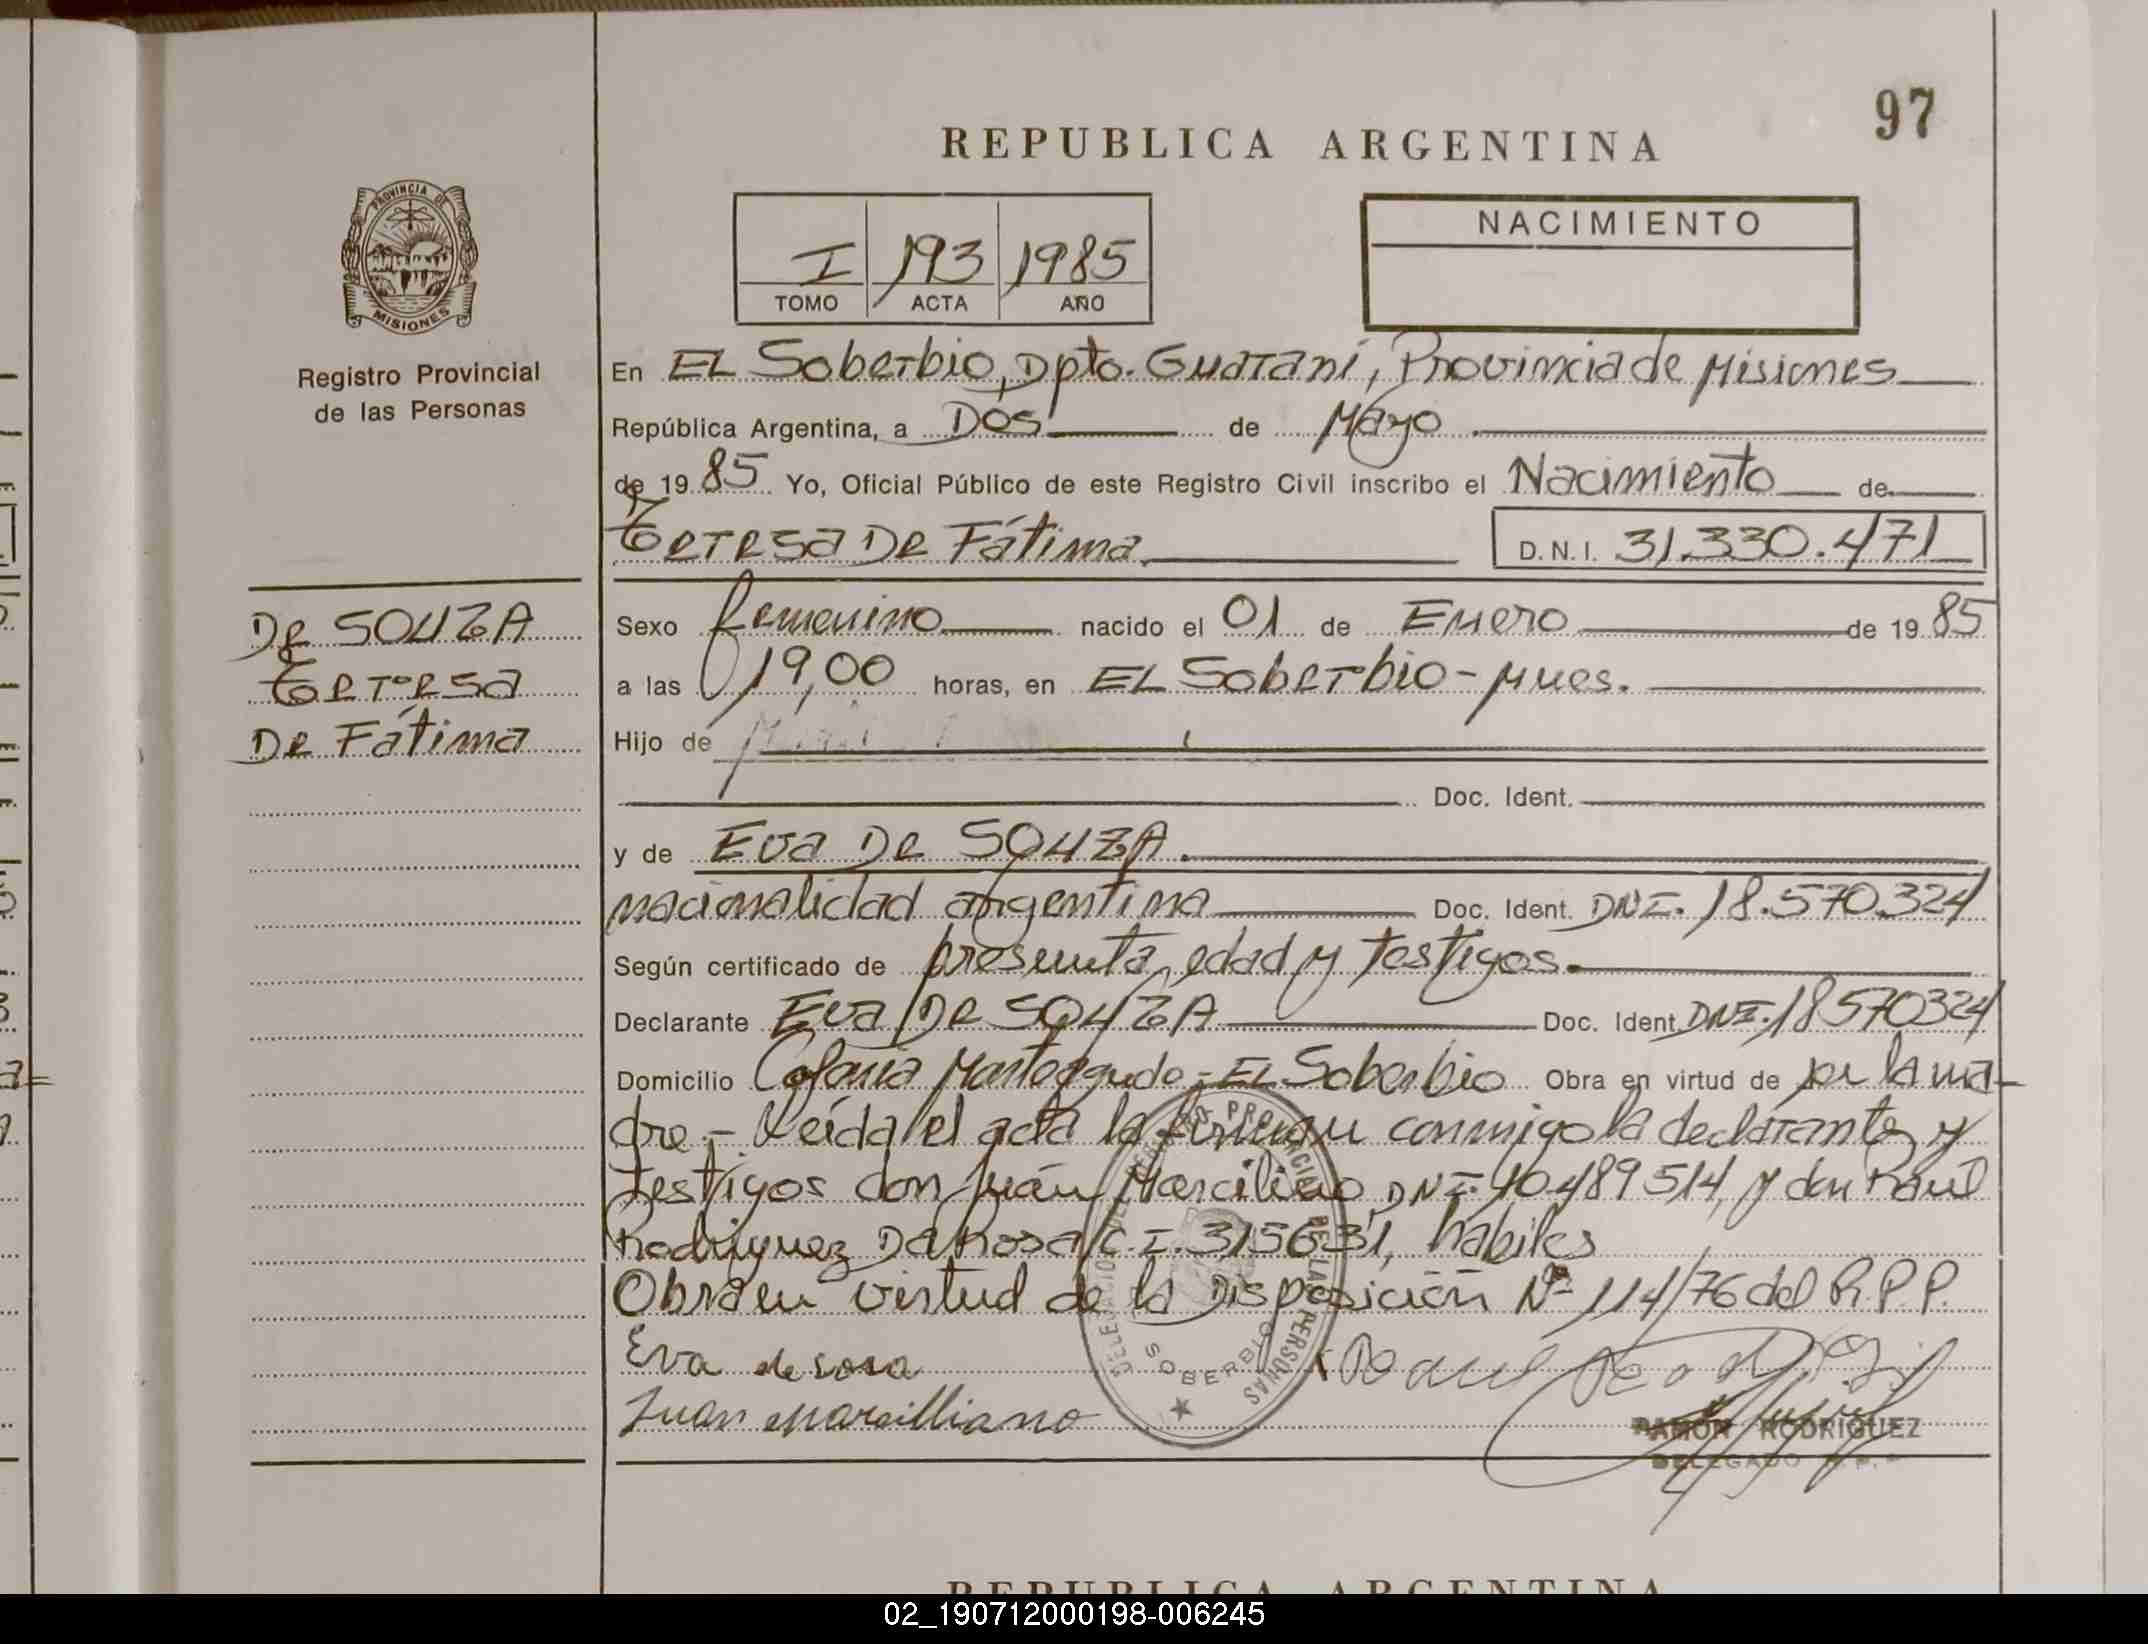 97
REPUBLICA ARGENTINA
PROVINCIA DE
MISIONES
Registro Provincial
de las Personas
NACIMIENTO
I 193 1985
TOMO ACTA AÑO
En EL Soberbio, Dpto. Guaraní, Provincia de Misiones
República Argentina, a Dos de Mayo
de 1985 Yo, Oficial Público de este Registro Civil inscribo el Nacimiento de
Teresa De Fátima
D.N.I. 31.330.471
De SOUZA
Teresa
De Fátima
Sexo femenino nacido el 01 de Enero de 1985
a las 19,00 horas, en EL Soberbio - Mnes.
Hijo de
Doc. Ident.
y de Eva De SOUZA.
nacionalidad argentina Doc. Ident. DNI. 18.570.324
Según certificado de presunta edad y testigos.
Declarante Eva De SOUZA Doc. Ident. DNI. 18570324
Domicilio Colonia Monteagudo - EL Soberbio Obra en virtud de por la ma-
dre.- Leída el acta la firman conmigo la declarante y
testigos don Juán Marciliano DNI. 10.489514, y don Raúl
Rodriguez Da Rosa C.I. 315631, hábiles
Obra en virtud de la Disposición Nº 114/76 del R.P.P.
Eva de sosa
Juan Marcilliano
SOBERBIO
RAMON RODRIGUEZ
DELEGADO
REPUBLICA ARGENTINA
02_190712000198-006245